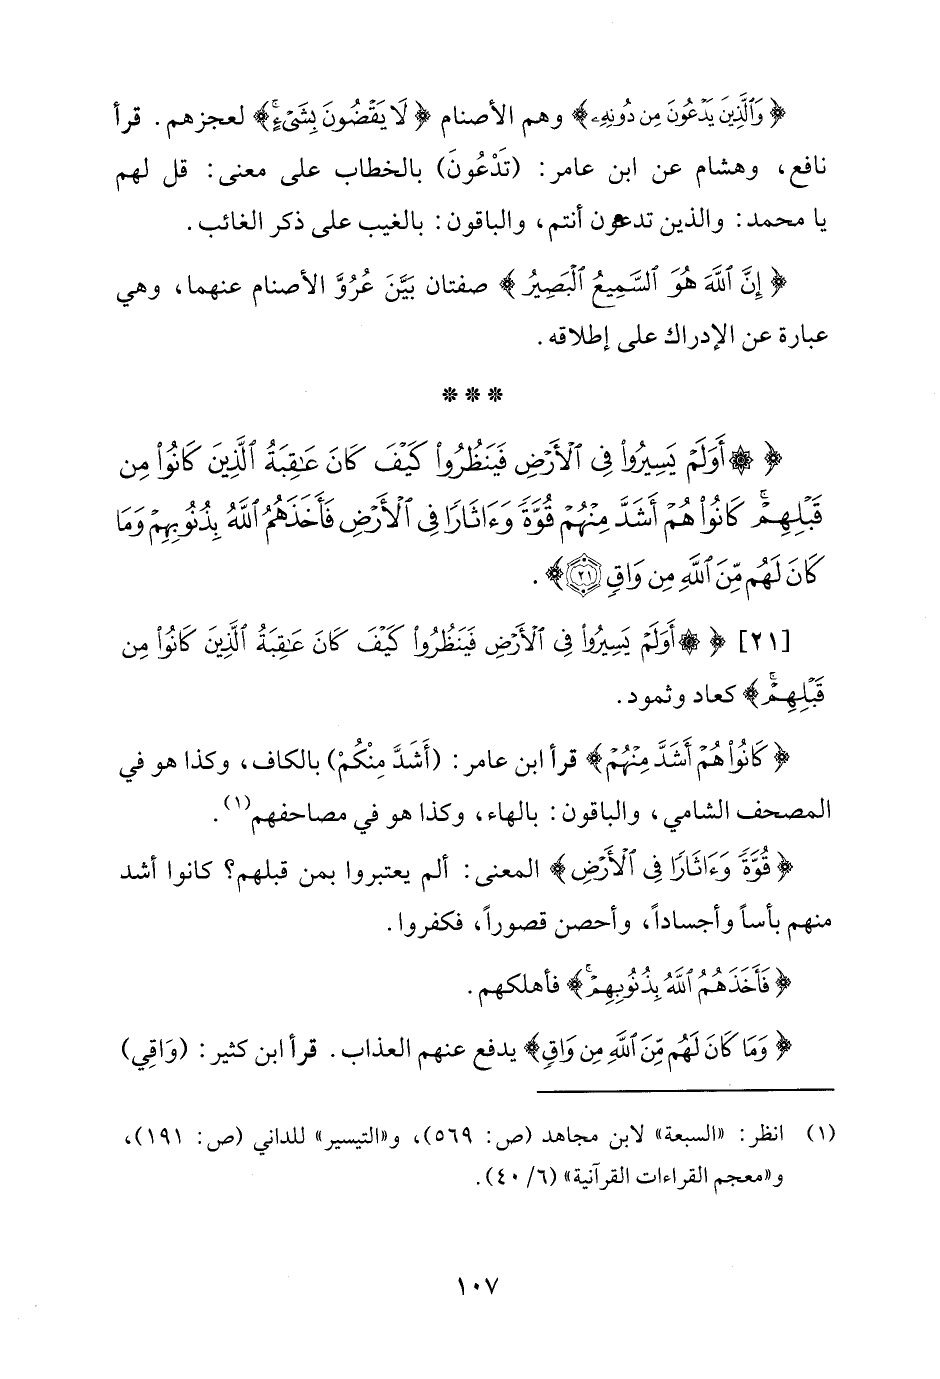 ﴿ وَٱلَّذِينَ يَدۡعُونَ مِن دُونِهِۦ ﴾ وهم الأصنام ﴿ لَا يَقۡضُونَ بِشَيۡءٍۗ ﴾ لعجزهم. قرأ
نافع، وهشام عن ابن عامر: (تَدْعُونَ) بالخطاب على معنى: قل لهم
يا محمد: والذين تدعون أنتم، والباقون: بالغيب على ذكر الغائب.
﴿ إِنَّ ٱللَّهَ هُوَ ٱلسَّمِيعُ ٱلۡبَصِيرُ ﴾ صفتان بَيَّنَ عُرُوَّ الأصنام عنهما، وهي
عبارة عن الإدراك على إطلاقه.
* * *
﴿ ۞ أَوَلَمۡ يَسِيرُواْ فِي ٱلۡأَرۡضِ فَيَنظُرُواْ كَيۡفَ كَانَ عَٰقِبَةُ ٱلَّذِينَ كَانُواْ مِن
قَبۡلِهِمۡۚ كَانُواْ هُمۡ أَشَدَّ مِنۡهُمۡ قُوَّةٗ وَءَاثَارٗا فِي ٱلۡأَرۡضِ فَأَخَذَهُمُ ٱللَّهُ بِذُنُوبِهِمۡ وَمَا
كَانَ لَهُم مِّنَ ٱللَّهِ مِن وَاقٖ ﴿٢١﴾ ﴾.
[٢١] ﴿ ۞ أَوَلَمۡ يَسِيرُواْ فِي ٱلۡأَرۡضِ فَيَنظُرُواْ كَيۡفَ كَانَ عَٰقِبَةُ ٱلَّذِينَ كَانُواْ مِن
قَبۡلِهِمۡۚ ﴾ كعاد وثمود.
﴿ كَانُواْ هُمۡ أَشَدَّ مِنۡهُمۡ ﴾ قرأ ابن عامر: (أَشَدَّ مِنْكُمْ) بالكاف، وكذا هو في
المصحف الشامي، والباقون: بالهاء، وكذا هو في مصاحفهم(١).
﴿ قُوَّةٗ وَءَاثَارٗا فِي ٱلۡأَرۡضِ ﴾ المعنى: ألم يعتبروا بمن قبلهم؟ كانوا أشد
منهم بأساً وأجساداً، وأحصن قصوراً، فكفروا.
﴿ فَأَخَذَهُمُ ٱللَّهُ بِذُنُوبِهِمۡۚ ﴾ فأهلكهم.
﴿ وَمَا كَانَ لَهُم مِّنَ ٱللَّهِ مِن وَاقٖ ﴾ يدفع عنهم العذاب. قرأ ابن كثير: (وَاقِي)
(١) انظر: «السبعة» لابن مجاهد (ص: ٥٦٩)، و«التيسير» للداني (ص: ١٩١)،
و«معجم القراءات القرآنية» (٦/ ٤٠).
١٠٧